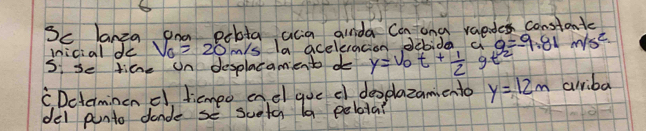 Se lanza una pelota, acia arriba con una rapides constante
inicial de V₀ = 20 m/s, la aceleracion debida a g = -9.81 m/s²
Si se tiene un desplacamiento de y = V₀t + 1/2 gt²
¿Determinen el tiempo en el que el desplazamiento y = 12m arriba
del punto donde se suelta la pelota?